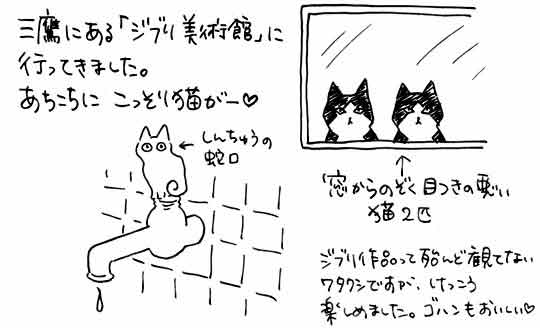 三鷹にある「ジブリ美術館」に
行ってきました。
あちこちに こっそり猫がー♡
しんちゅうの
蛇口
窓からのぞく目つきの悪い
猫2匹
ジブリ作品って殆んど観てない
ワタクシですが、けっこう
楽しめました。ゴハンもおいしい♡